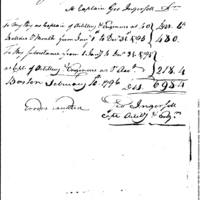 Captain Geo Ingersoll Dr
To My Pay as Captain of Artillery & Engineers at 40 Dols
Dollars P Month from Jany 1 to Decr 31 1795 480.
To My Subsistance from 1 Jany to Decr 31 1795
as Capt of Artillery Engineers at 218.4
Boston February 10. 1796 Dls 698.4
Errors excepted
Geo Ingersoll
Capt Artily & Engrs